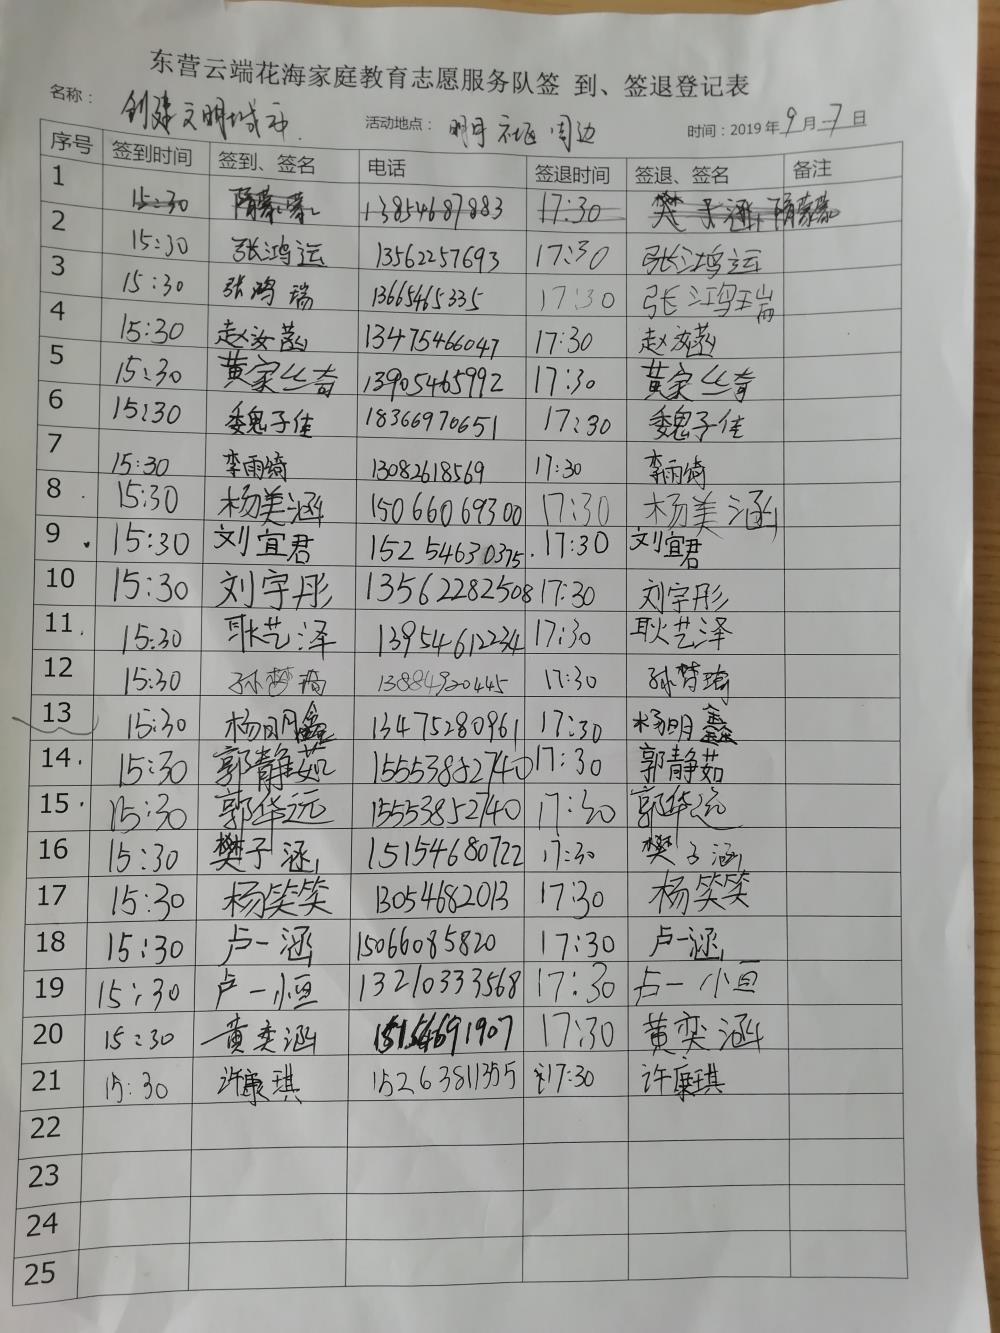 东营云端花海家庭教育志愿服务队签 到、签退登记表
名称： 创建文明城市 活动地点： 明月社区周边 时间：2019年9月7日
序号 签到时间 签到、签名 电话 签退时间 签退、签名 备注
1 15:30 隋蒙蒙 13854687883 17:30 樊子涵 隋蒙蒙
2 15:30 张鸿运 13562257693 17:30 张鸿运
3 15:30 张鸿瑞 13665465335 17:30 张鸿瑞
4 15:30 赵汝菡 13475466047 17:30 赵汝菡
5 15:30 黄家丝奇 13905465992 17:30 黄家丝奇
6 15:30 魏子佳 18366970651 17:30 魏子佳
7 15:30 李雨绮 13082618569 17:30 李雨绮
8 15:30 杨美涵 15066069300 17:30 杨美涵
9 15:30 刘宜君 15254630375 17:30 刘宜君
10 15:30 刘宇彤 13562282508 17:30 刘宇彤
11 15:30 耿艺泽 13954612234 17:30 耿艺泽
12 15:30 孙梦琦 13884920445 17:30 孙梦琦
13 15:30 杨明鑫 13475280961 17:30 杨明鑫
14 15:30 郭静茹 15553852740 17:30 郭静茹
15 15:30 郭华远 15553852740 17:30 郭华远
16 15:30 樊子涵 15154680722 17:30 樊子涵
17 15:30 杨笑笑 13054682013 17:30 杨笑笑
18 15:30 卢一涵 15066085820 17:30 卢一涵
19 15:30 卢一恒 13210333568 17:30 卢一恒
20 15:30 黄奕涵 15154691907 17:30 黄奕涵
21 15:30 许康琪 15263811355 17:30 许康琪
22
23
24
25